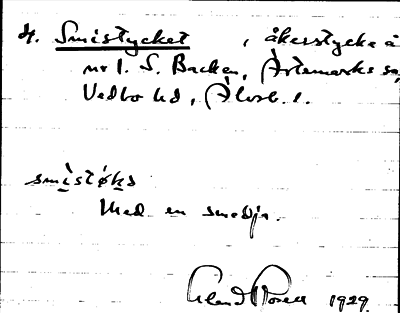 4. Smistycket, åkerstycke å
nr 1. S. Backen, Ärtemarks sn,
Vedbo hd, Älvsb. l.
smìstø̀ks
Med en smedja.
1929.